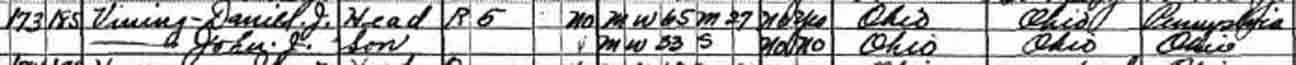 173 185 Vining - Daniel. J. Head R 5 no M W 65 M 27 no yes Ohio Ohio Pennsylvania
John. J. Son ✓ M W 33 S no no Ohio Ohio Ohio